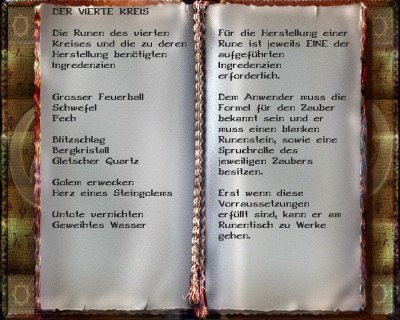 DER VIERTE KREIS
Die Runen des vierten
Kreises und die zu deren
Herstellung benötigten
Ingredenzien
Grosser Feuerball
Schwefel
Pech
Blitzschlag
Bergkristall
Gletscher Quartz
Golem erwecken
Herz eines Steingolems
Untote vernichten
Geweihtes Wasser
Für die Herstellung einer
Rune ist jeweils EINE der
aufgeführten
Ingredenzien
erforderlich.
Dem Anwender muss die
Formel für den Zauber
bekannt sein und er
muss einen blanken
Runenstein, sowie eine
Spruchrolle des
jeweiligen Zaubers
besitzen.
Erst wenn diese
Vorraussetzungen
erfüllt sind, kann er am
Runentisch zu Werke
gehen.